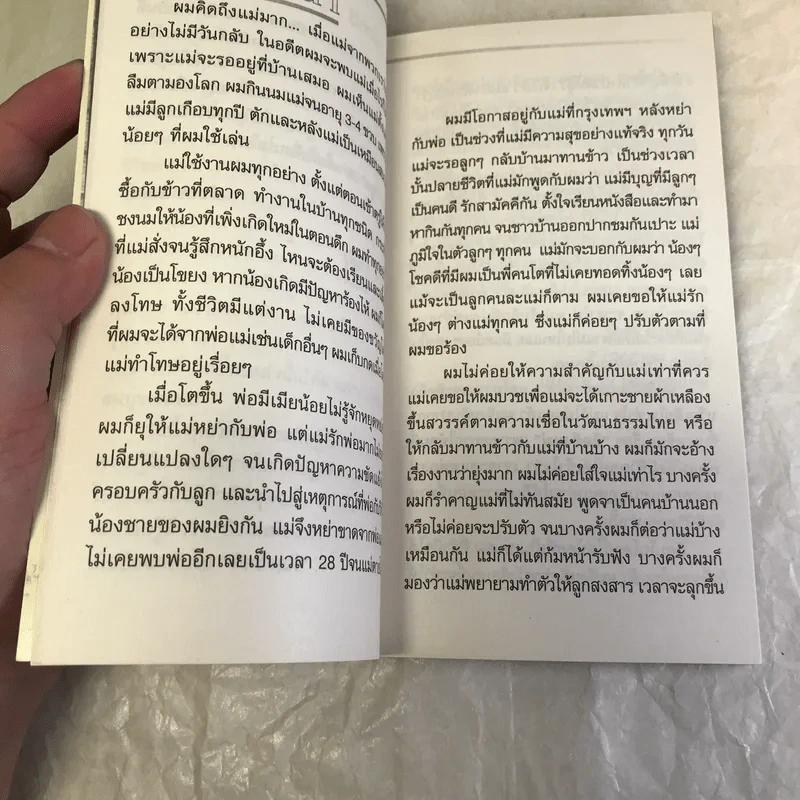 ผมคิดถึงแม่มาก... เมื่อแม่จากพวกเรา
อย่างไม่มีวันกลับ ในอดีตผมจะพบแม่เมื่อ
เพราะแม่จะรออยู่ที่บ้านเสมอ ผมเห็นแม่
ลืมตามองโลก ผมกินนมแม่จนอายุ 3-4 ขวบ
แม่มีลูกเกือบทุกปี ตักและหลังแม่เป็นเหมือน
น้อยๆ ที่ผมใช้เล่น
แม่ใช้งานผมทุกอย่าง ตั้งแต่ตอนเช้า
ซื้อกับข้าวที่ตลาด ทำงานในบ้านทุกชนิด
ชงนมให้น้องที่เพิ่งเกิดใหม่ในตอนดึก ผมทำทุก
ที่แม่สั่งจนรู้สึกหนักอึ้ง ไหนจะต้องเรียนและ
น้องเป็นโขยง หากน้องเกิดมีปัญหาร้องไห้
ลงโทษ ทั้งชีวิตมีแต่งาน ไม่เคยมีของขวัญ
ที่ผมจะได้จากพ่อแม่เช่นเด็กอื่นๆ ผมเก็บกด
แม่ทำโทษอยู่เรื่อยๆ
เมื่อโตขึ้น พ่อมีเมียน้อยไม่รู้จักหยุด
ผมก็ยุให้แม่หย่ากับพ่อ แต่แม่รักพ่อมาก
เปลี่ยนแปลงใดๆ จนเกิดปัญหาความขัดแย้ง
ครอบครัวกับลูก และนำไปสู่เหตุการณ์ที่พ่อกับ
น้องชายของผมยิงกัน แม่จึงหย่าขาดจากพ่อ
ไม่เคยพบพ่ออีกเลยเป็นเวลา 28 ปีจนแม่ตาย
ผมมีโอกาสอยู่กับแม่ที่กรุงเทพฯ หลังหย่า
กับพ่อ เป็นช่วงที่แม่มีความสุขอย่างแท้จริง ทุกวัน
แม่จะรอลูกๆ กลับบ้านมาทานข้าว เป็นช่วงเวลา
บั้นปลายชีวิตที่แม่มักพูดกับผมว่า แม่มีบุญที่มีลูกๆ
เป็นคนดี รักสามัคคีกัน ตั้งใจเรียนหนังสือและทำมา
หากินกันทุกคน จนชาวบ้านออกปากชมกันเปาะ แม่
ภูมิใจในตัวลูกๆ ทุกคน แม่มักจะบอกกับผมว่า น้องๆ
โชคดีที่มีผมเป็นพี่คนโตที่ไม่เคยทอดทิ้งน้องๆ เลย
แม้จะเป็นลูกคนละแม่ก็ตาม ผมเคยขอให้แม่รัก
น้องๆ ต่างแม่ทุกคน ซึ่งแม่ก็ค่อยๆ ปรับตัวตามที่
ผมขอร้อง
ผมไม่ค่อยให้ความสำคัญกับแม่เท่าที่ควร
แม่เคยขอให้ผมบวชเพื่อแม่จะได้เกาะชายผ้าเหลือง
ขึ้นสวรรค์ตามความเชื่อในวัฒนธรรมไทย หรือ
ให้กลับมาทานข้าวกับแม่ที่บ้านบ้าง ผมก็มักจะอ้าง
เรื่องงานว่ายุ่งมาก ผมไม่ค่อยใส่ใจแม่เท่าไร บางครั้ง
ผมก็รำคาญแม่ที่ไม่ทันสมัย พูดจาเป็นคนบ้านนอก
หรือไม่ค่อยจะปรับตัว จนบางครั้งผมก็ต่อว่าแม่บ้าง
เหมือนกัน แม่ก็ได้แต่ก้มหน้ารับฟัง บางครั้งผมก็
มองว่าแม่พยายามทำตัวให้ลูกสงสาร เวลาจะลุกขึ้น